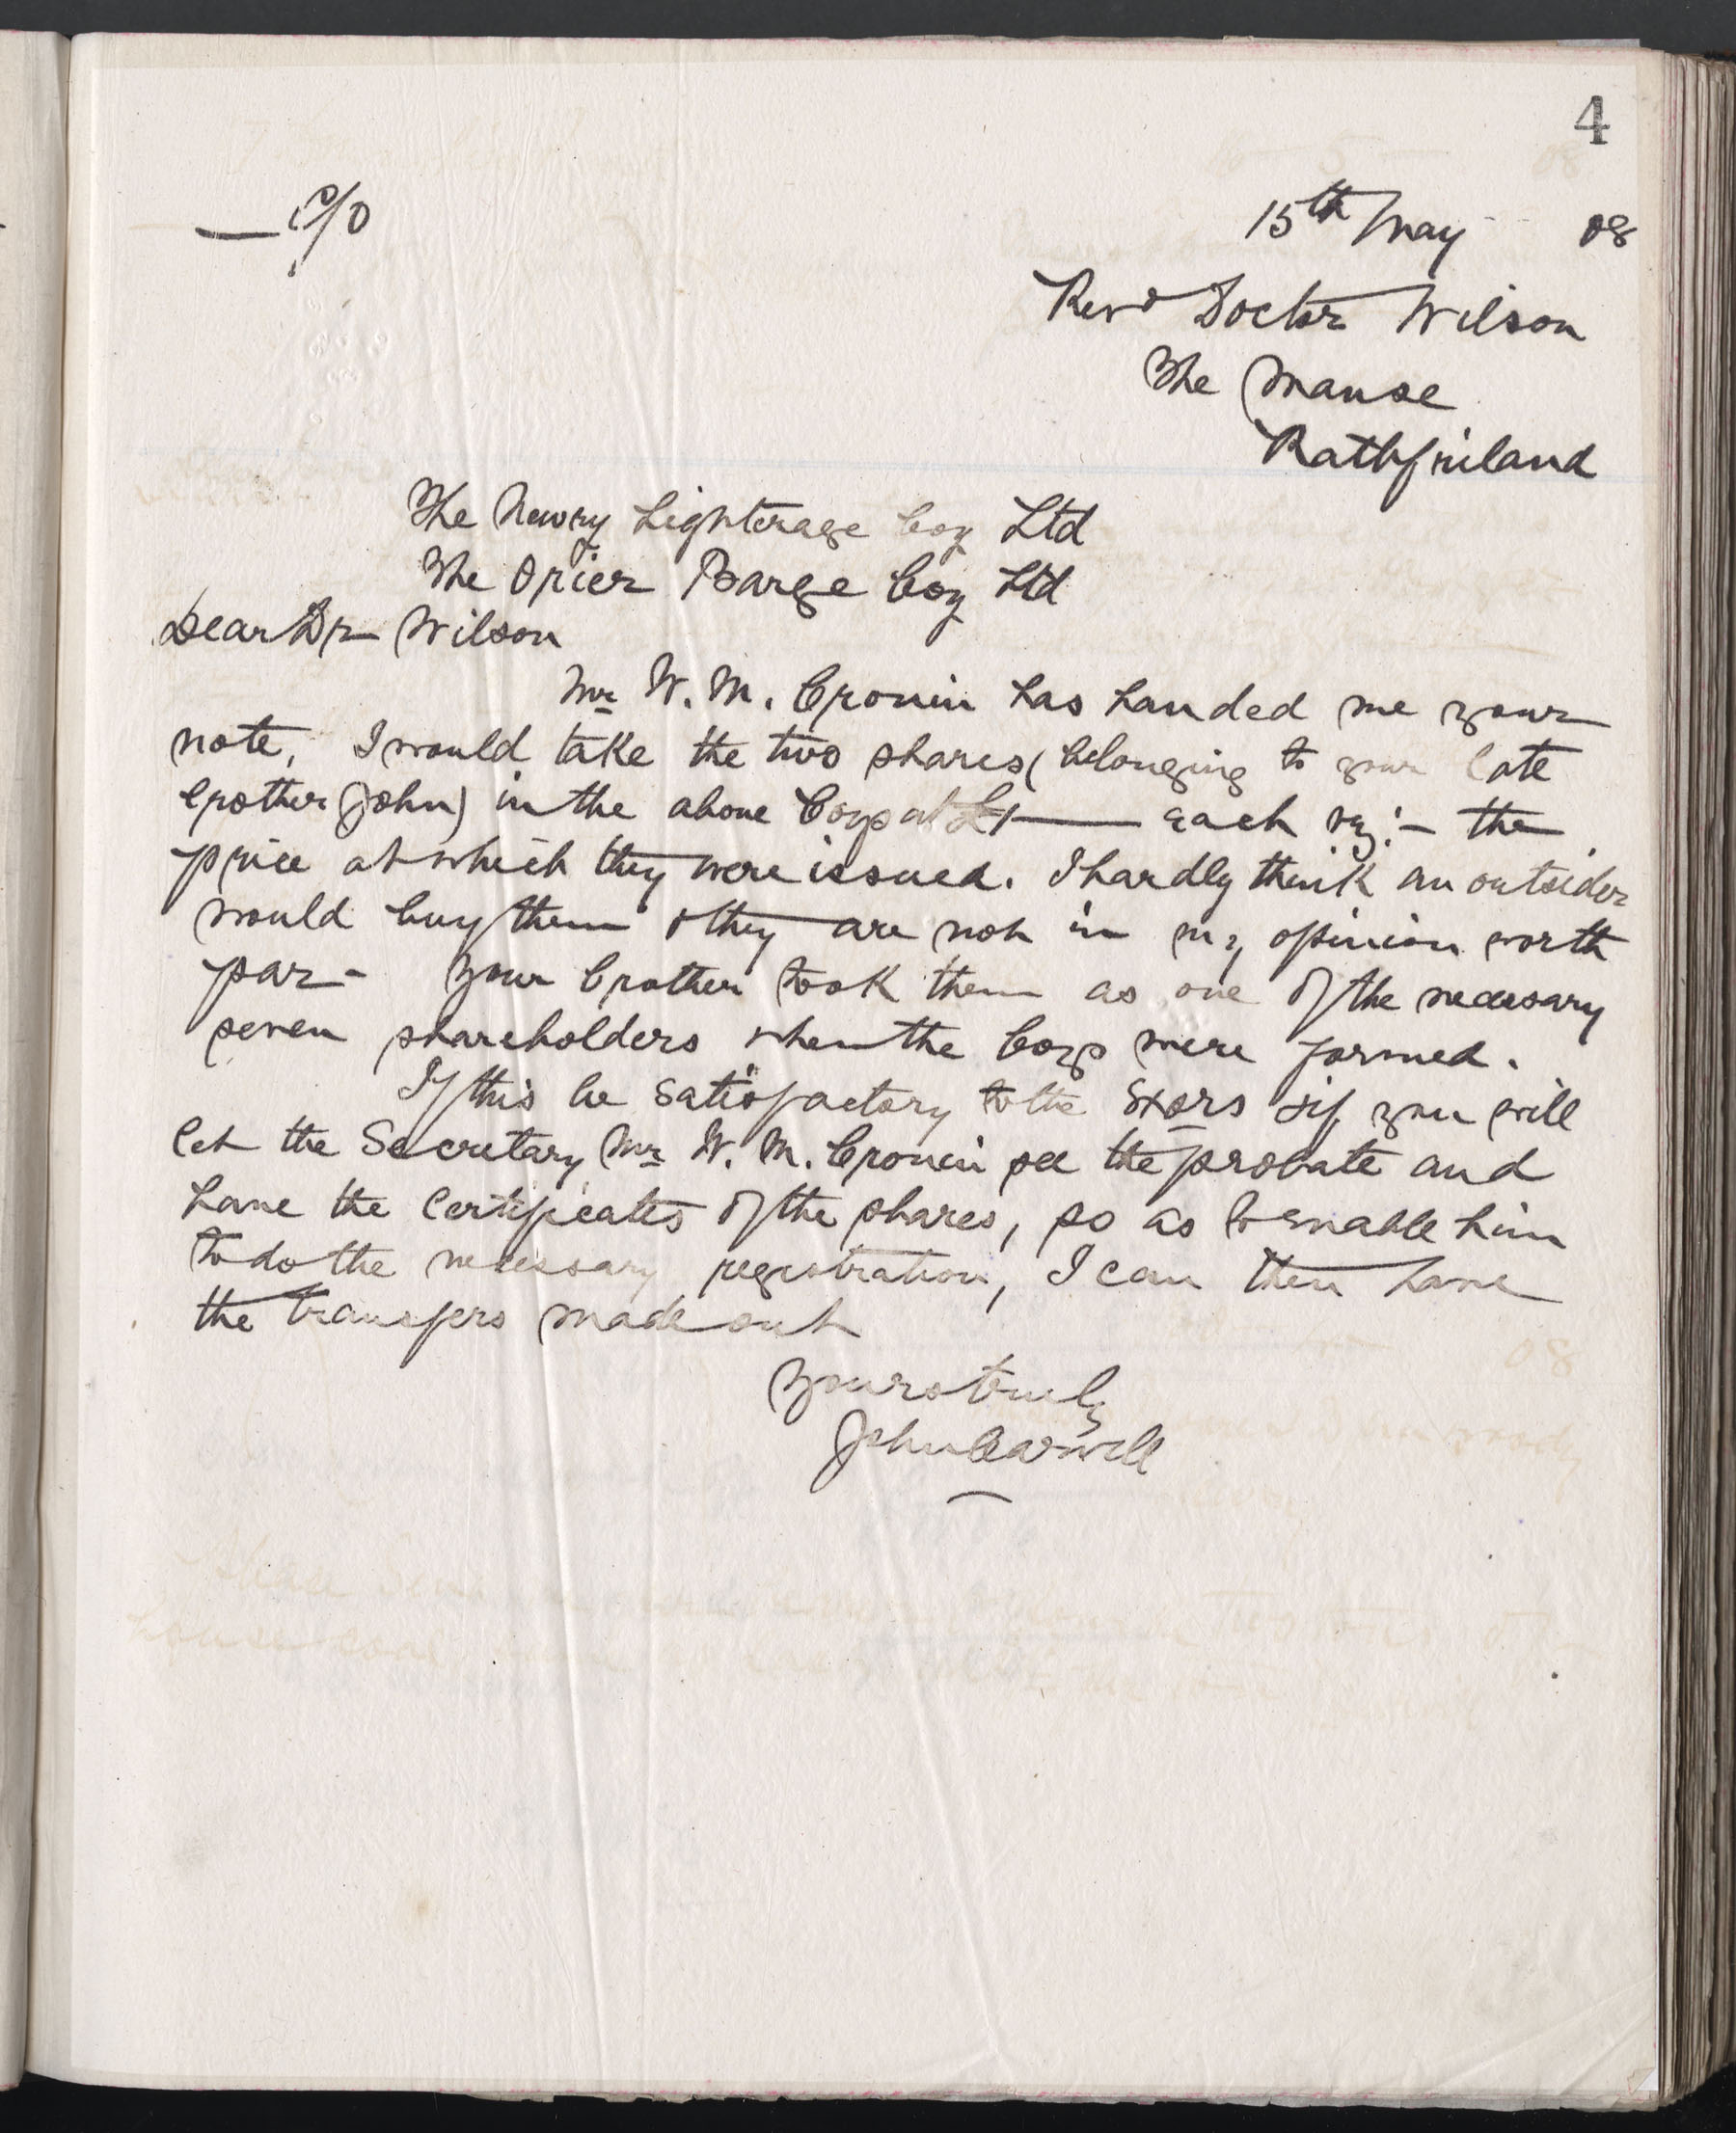 4
C/o
15th May 08
Revd Doctor Wilson
The Manse
Rathfriland
The Newry Lighterage Coy Ltd
The Orier Barge Coy Ltd
Dear Dr Wilson
Mr W. M. Cronin has handed me your
note, I would take the two shares (belonging to your late
brother John) in the above Coys at £1 each viz:- the
price at which they were issued. I hardly think an outsider
would buy them & they are not in my opinion worth
par - Your brother took them as one of the necessary
seven shareholders when the Coys were formed.
If this be satisfactory to the Exors if you will
let the Secretary Mr W. M. Cronin see the probate and
have the Certificates of the shares, so as to enable him
to do the necessary registration, I can then have
the transfers made out
Yours truly
John Carvill